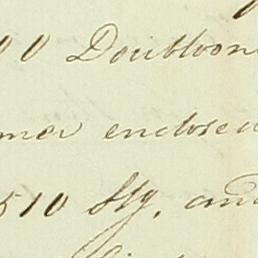 00 Doubloon
mer enclosed
510 Stg, and